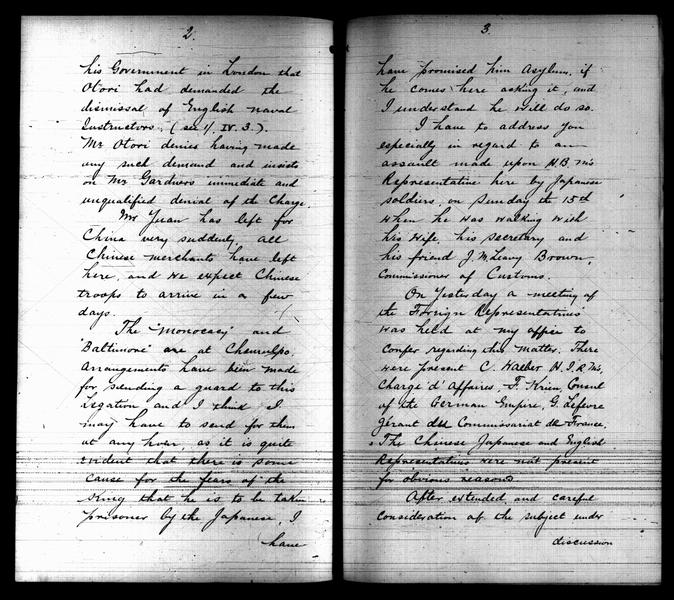 2.
his Government in London that
Otori had demanded the
dismissal of English naval
Instructors. (see 1/ IV. 3.).
Mr Otori denies having made
any such demand and insists
on Mr Gardners immediate and
unqualified denial of the Charge.
Mr Yuan has left for
China very suddenly, all
Chinese merchants have left
here, and we expect Chinese
troops to arrive in a few
days.
The "Monocacy" and
"Baltimore" are at Chemulpo.
Arrangements have been made
for sending a guard to this
Legation and I think I
may have to send for them
at any hour, as it is quite
evident that there is some
cause for the fears of the
King that he is to be taken
prisoner by the Japanese. I
have
3.
have promised him Asylum, if
he comes here asking it, and
I understand he will do so.
I have to address you
especially in regard to an
assault made upon H.B.M's
Representative here by Japanese
soldiers, on Sunday the 15th
when he was walking with
his wife, his secretary and
his friend J. McLeavy Brown,
Commissioner of Customs.
On Yesterday a meeting of
the Foreign Representatives
was held at my office to
confer regarding this matter. There
were present C. Waeber H.I.R.M's,
Chargé d'Affaires, F. Krien, Consul
of the German Empire, G. Lefevre
Gérant du Commissariat de France.
The Chinese Japanese and English
Representatives were not present
for obvious reasons.
After extended and careful
consideration of the subject under
discussion